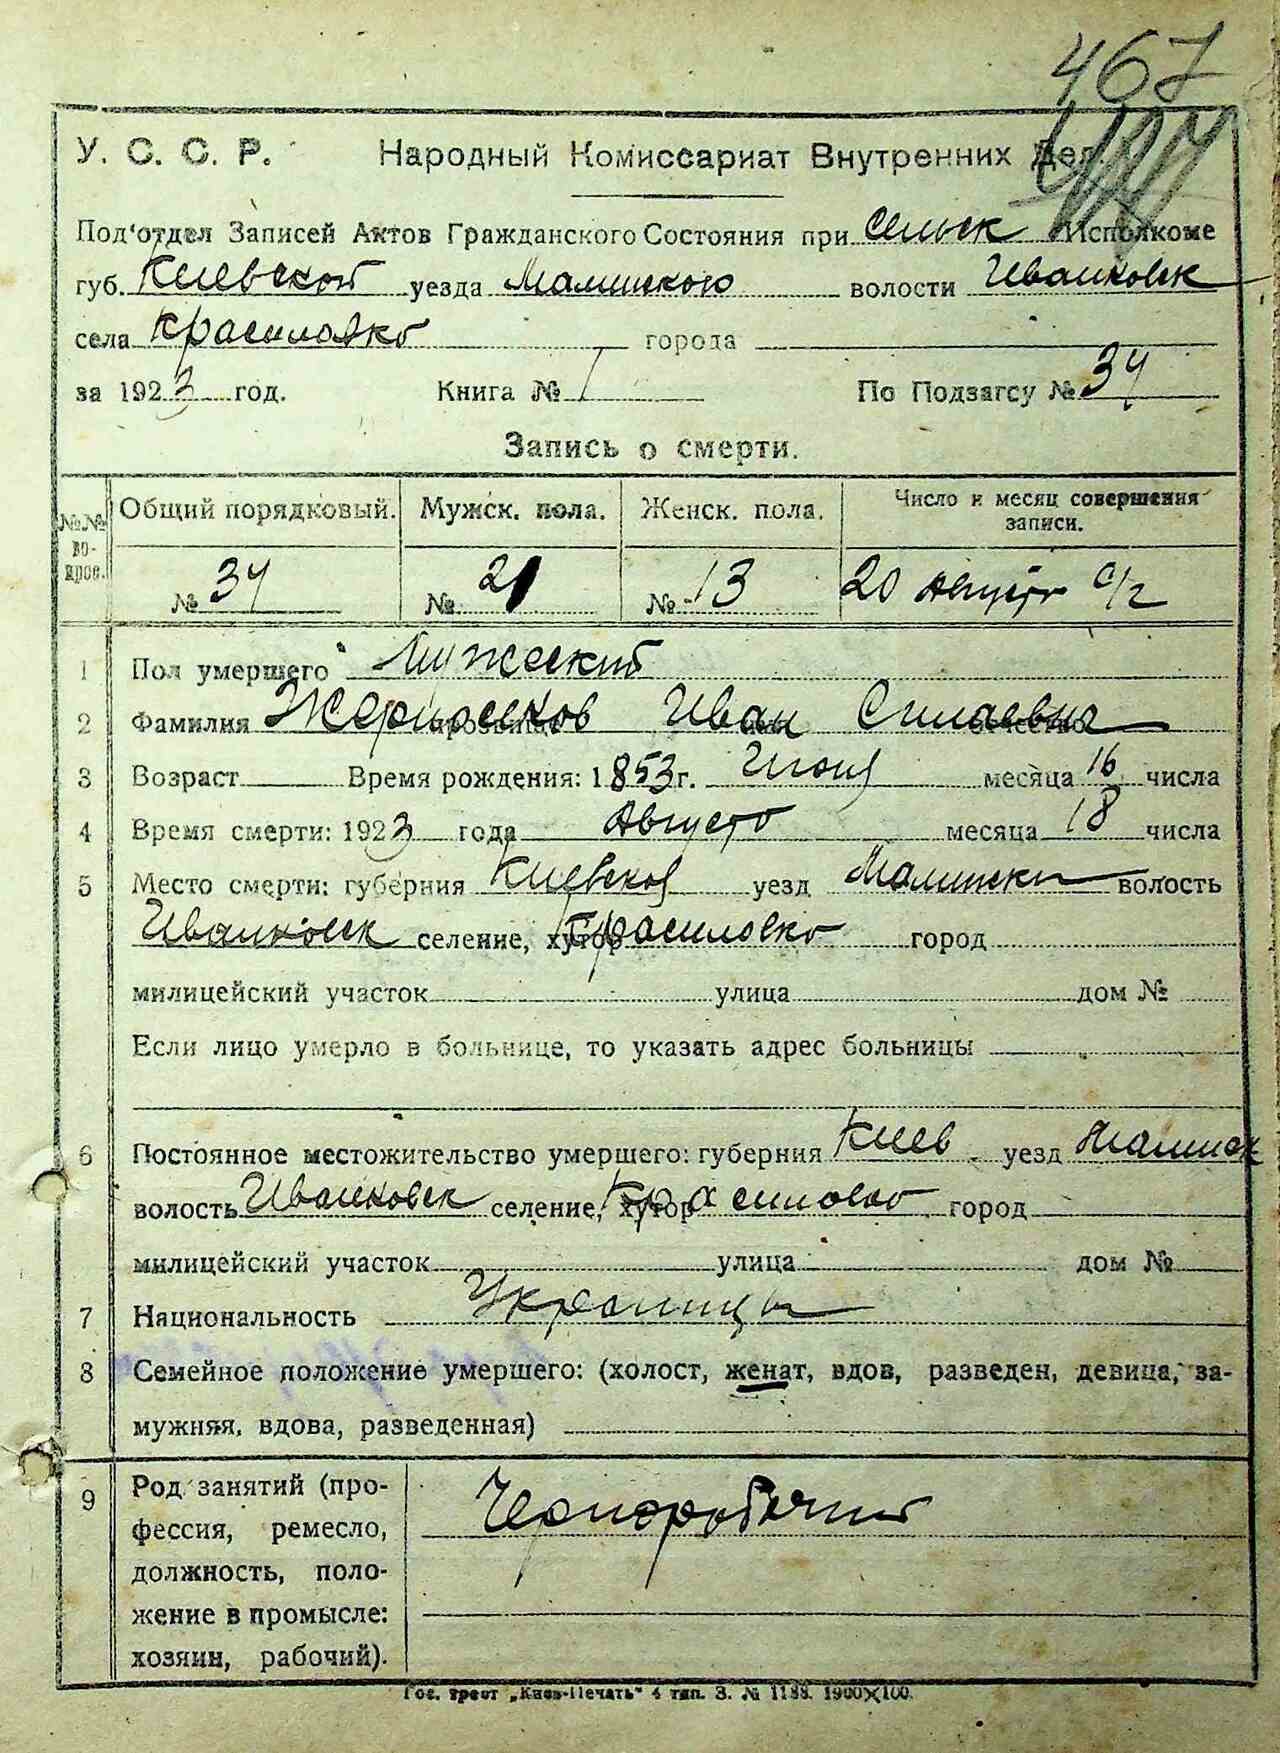 467
У. С. С. Р. Народный Комиссариат Внутренних Дел.
Под'отдел Записей Актов Гражданского Состояния при сельск Исполкоме
губ. Киевской уезда Малинского волости Иванковск
села Красиловка города
за 1923 год. Книга № 1 По Подзагсу № 34
Запись о смерти.
№№ вопрос. Общий порядковый. Мужск. пола. Женск. пола. Число и месяц совершения записи.
№ 34 № 21 № 13 20 августа с/г
1 Пол умершего Мужеский
2 Фамилия прозвище Иван имя отчество
3 Возраст Время рождения: 1853 г. месяца 16 числа
4 Время смерти: 1923 года Августа месяца 18 числа
5 Место смерти: губерния Киевской уезд Малински волость
Иванковск селение, хутор Красиловка город
милицейский участок улица дом №
Если лицо умерло в больнице, то указать адрес больницы
6 Постоянное местожительство умершего: губерния Киев уезд Малинск
волость Иванковск селение, хутор Красиловка город
милицейский участок улица дом №
7 Национальность Украинцы
8 Семейное положение умершего: (холост, женат, вдов, разведен, девица, за-
мужняя, вдова, разведенная)
9 Род занятий (про- Чернорабочий
фессия, ремесло,
должность, поло-
жение в промысле:
хозяин, рабочий).
Гос. трест „Киев-Печать" 4 тип. З. № 1188. 1900×100.